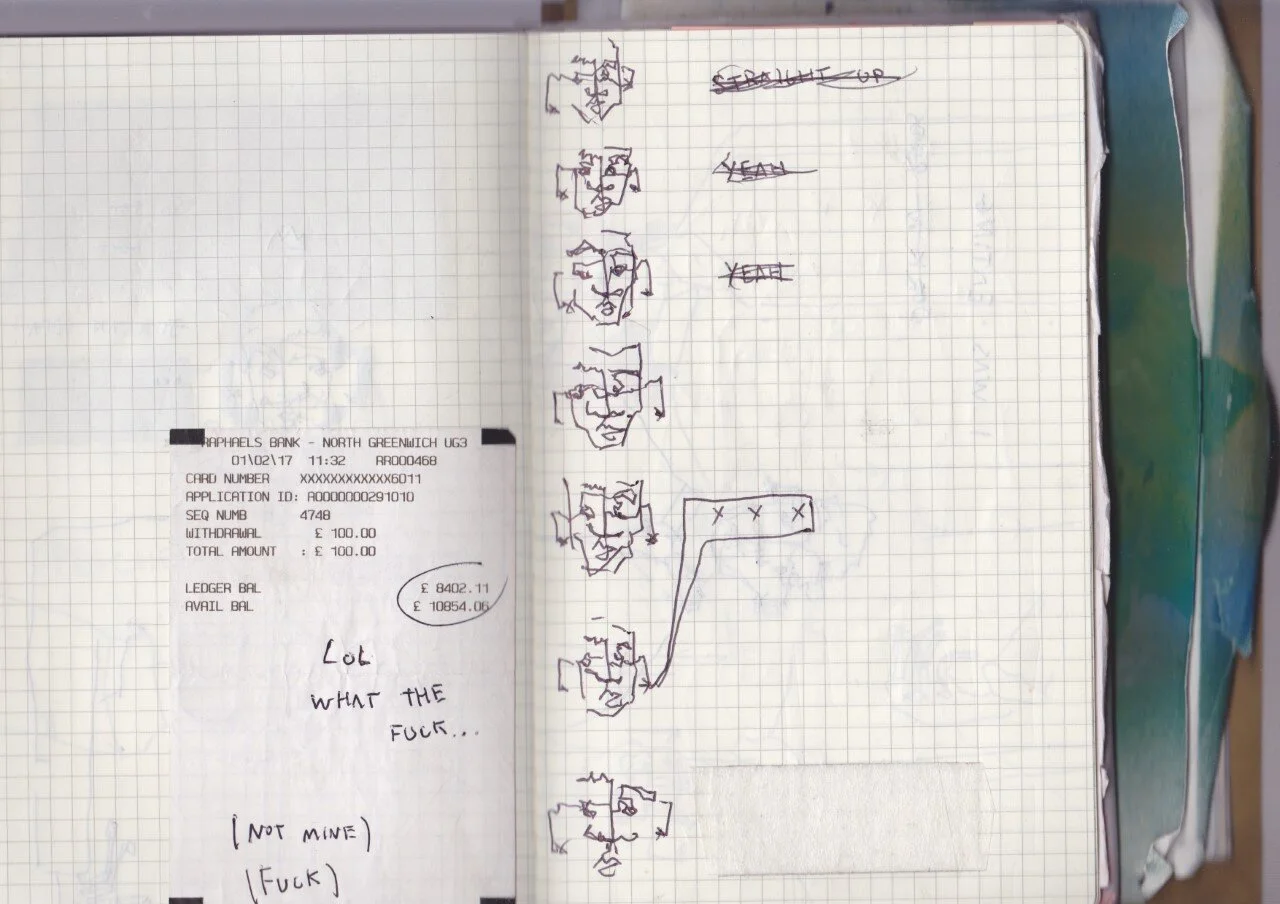 RAPHAELS BANK - NORTH GREENWICH UG3
01\02\17 11:32 RR000468
CARD NUMBER XXXXXXXXXXXX6011
APPLICATION ID: A0000000291010
SEQ NUMB 4748
WITHDRAWAL £ 100.00
TOTAL AMOUNT : £ 100.00
LEDGER BAL £ 8402.11
AVAIL BAL £ 10854.06
LOL
WHAT THE
FUCK...
(NOT MINE)
(FUCK)
STRAIGHT UP
YEAH
YEAH
X X X